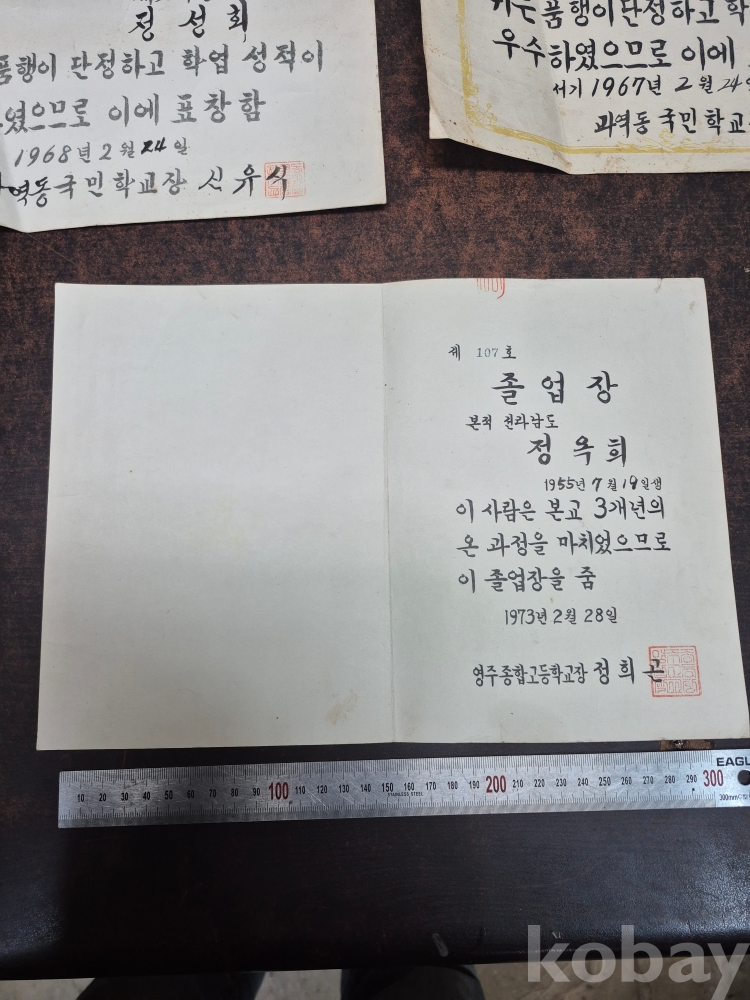 정성희
품행이 단정하고 학업 성적이
였으므로 이에 표창함
1968년 2월 24일
역동국민학교장 신유식
품행이 단정하고 학
우수하였으므로 이에
서기 1967년 2월 24일
과역동국민학교
제 107호
졸업장
본적 전라남도
정옥희
1955년 7월 19일생
이 사람은 본교 3개년의
온 과정을 마치었으므로
이 졸업장을 줌
1973년 2월 28일
영주종합고등학교장 정희곤
EAGL
10 20 30 40 50 60 70 80 90 100 110 120 130 140 150 160 170 180 190 200 210 220 230 240 250 260 270 280 290 300
STAINLESS STEEL
300mm
kobay